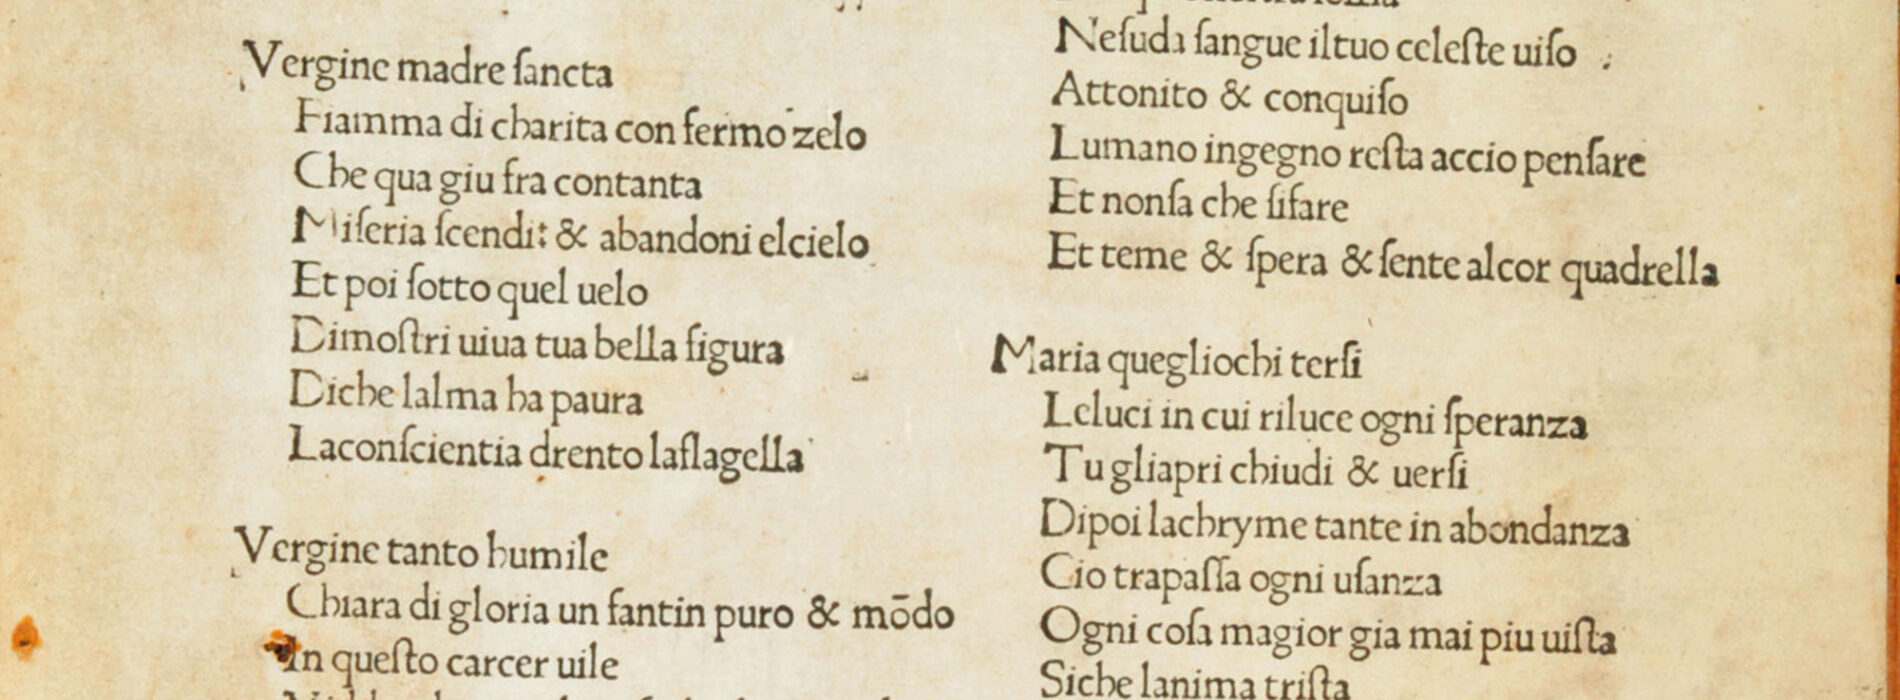 Vergine madre ſancta
Fiamma di charita con fermo zelo
Che qua giu fra contanta
Miſeria ſcendi: & abandoni elcielo
Et poi ſotto quel uelo
Dimoſtri uiua tua bella figura
Diche lalma ha paura
Laconſcientia drento laflagella
Vergine tanto humile
Chiara di gloria un fantin puro & mōdo
In queſto carcer uile
Neſuda ſangue iltuo celeſte uiſo
Attonito & conquiſo
Lumano ingegno reſta accio penſare
Et nonſa che ſifare
Et teme & ſpera & ſente alcor quadrella
Maria quegliochi terſi
Leluci in cui riluce ogni ſperanza
Tu gliapri chiudi & uerſi
Dipoi lachryme tante in abondanza
Cio trapaſſa ogni uſanza
Ogni coſa magior gia mai piu uiſta
Siche lanima triſta